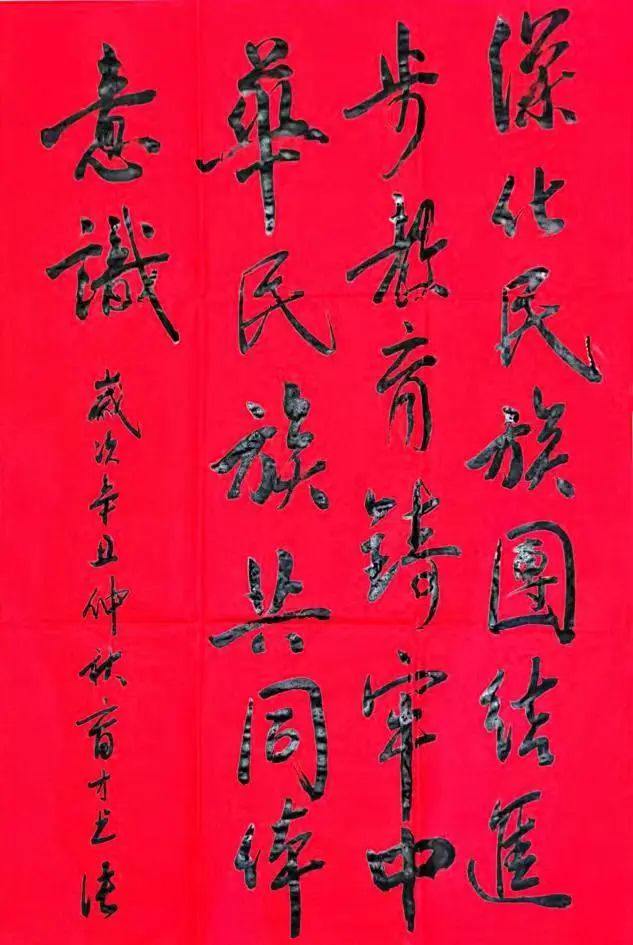 深化民族團结進
步教育鑄牢中
華民族共同体
意識
歲次辛丑仲秋育才书